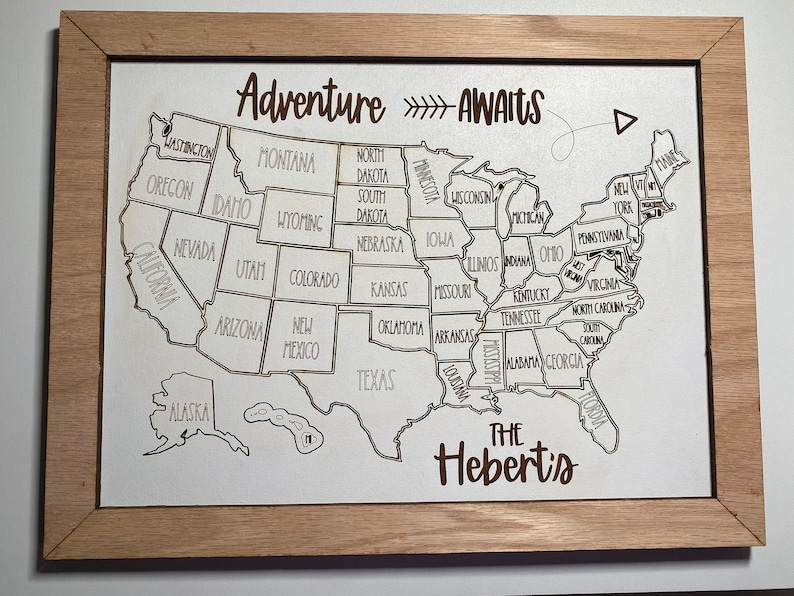 Adventure AWAITS
WASHINGTON
OREGON
IDAHO
MONTANA
WYOMING
NORTH
DAKOTA
SOUTH
DAKOTA
MINNESOTA
WISCONSIN
MICHIGAN
NEW
YORK
VT
NH
MAINE
CALIFORNIA
NEVADA
UTAH
COLORADO
NEBRASKA
KANSAS
IOWA
MISSOURI
ILLINIOS
INDIANA
OHIO
PENNSYLVANIA
WEST
VIRGINIA
VIRGINIA
KENTUCKY
TENNESSEE
NORTH CAROLINA
SOUTH
CAROLINA
ARIZONA
NEW
MEXICO
OKLAHOMA
TEXAS
ARKANSAS
LOUISIANA
MISSISSIPPI
ALABAMA
GEORGIA
FLORDIA
ALASKA
HI
THE
Hebert's